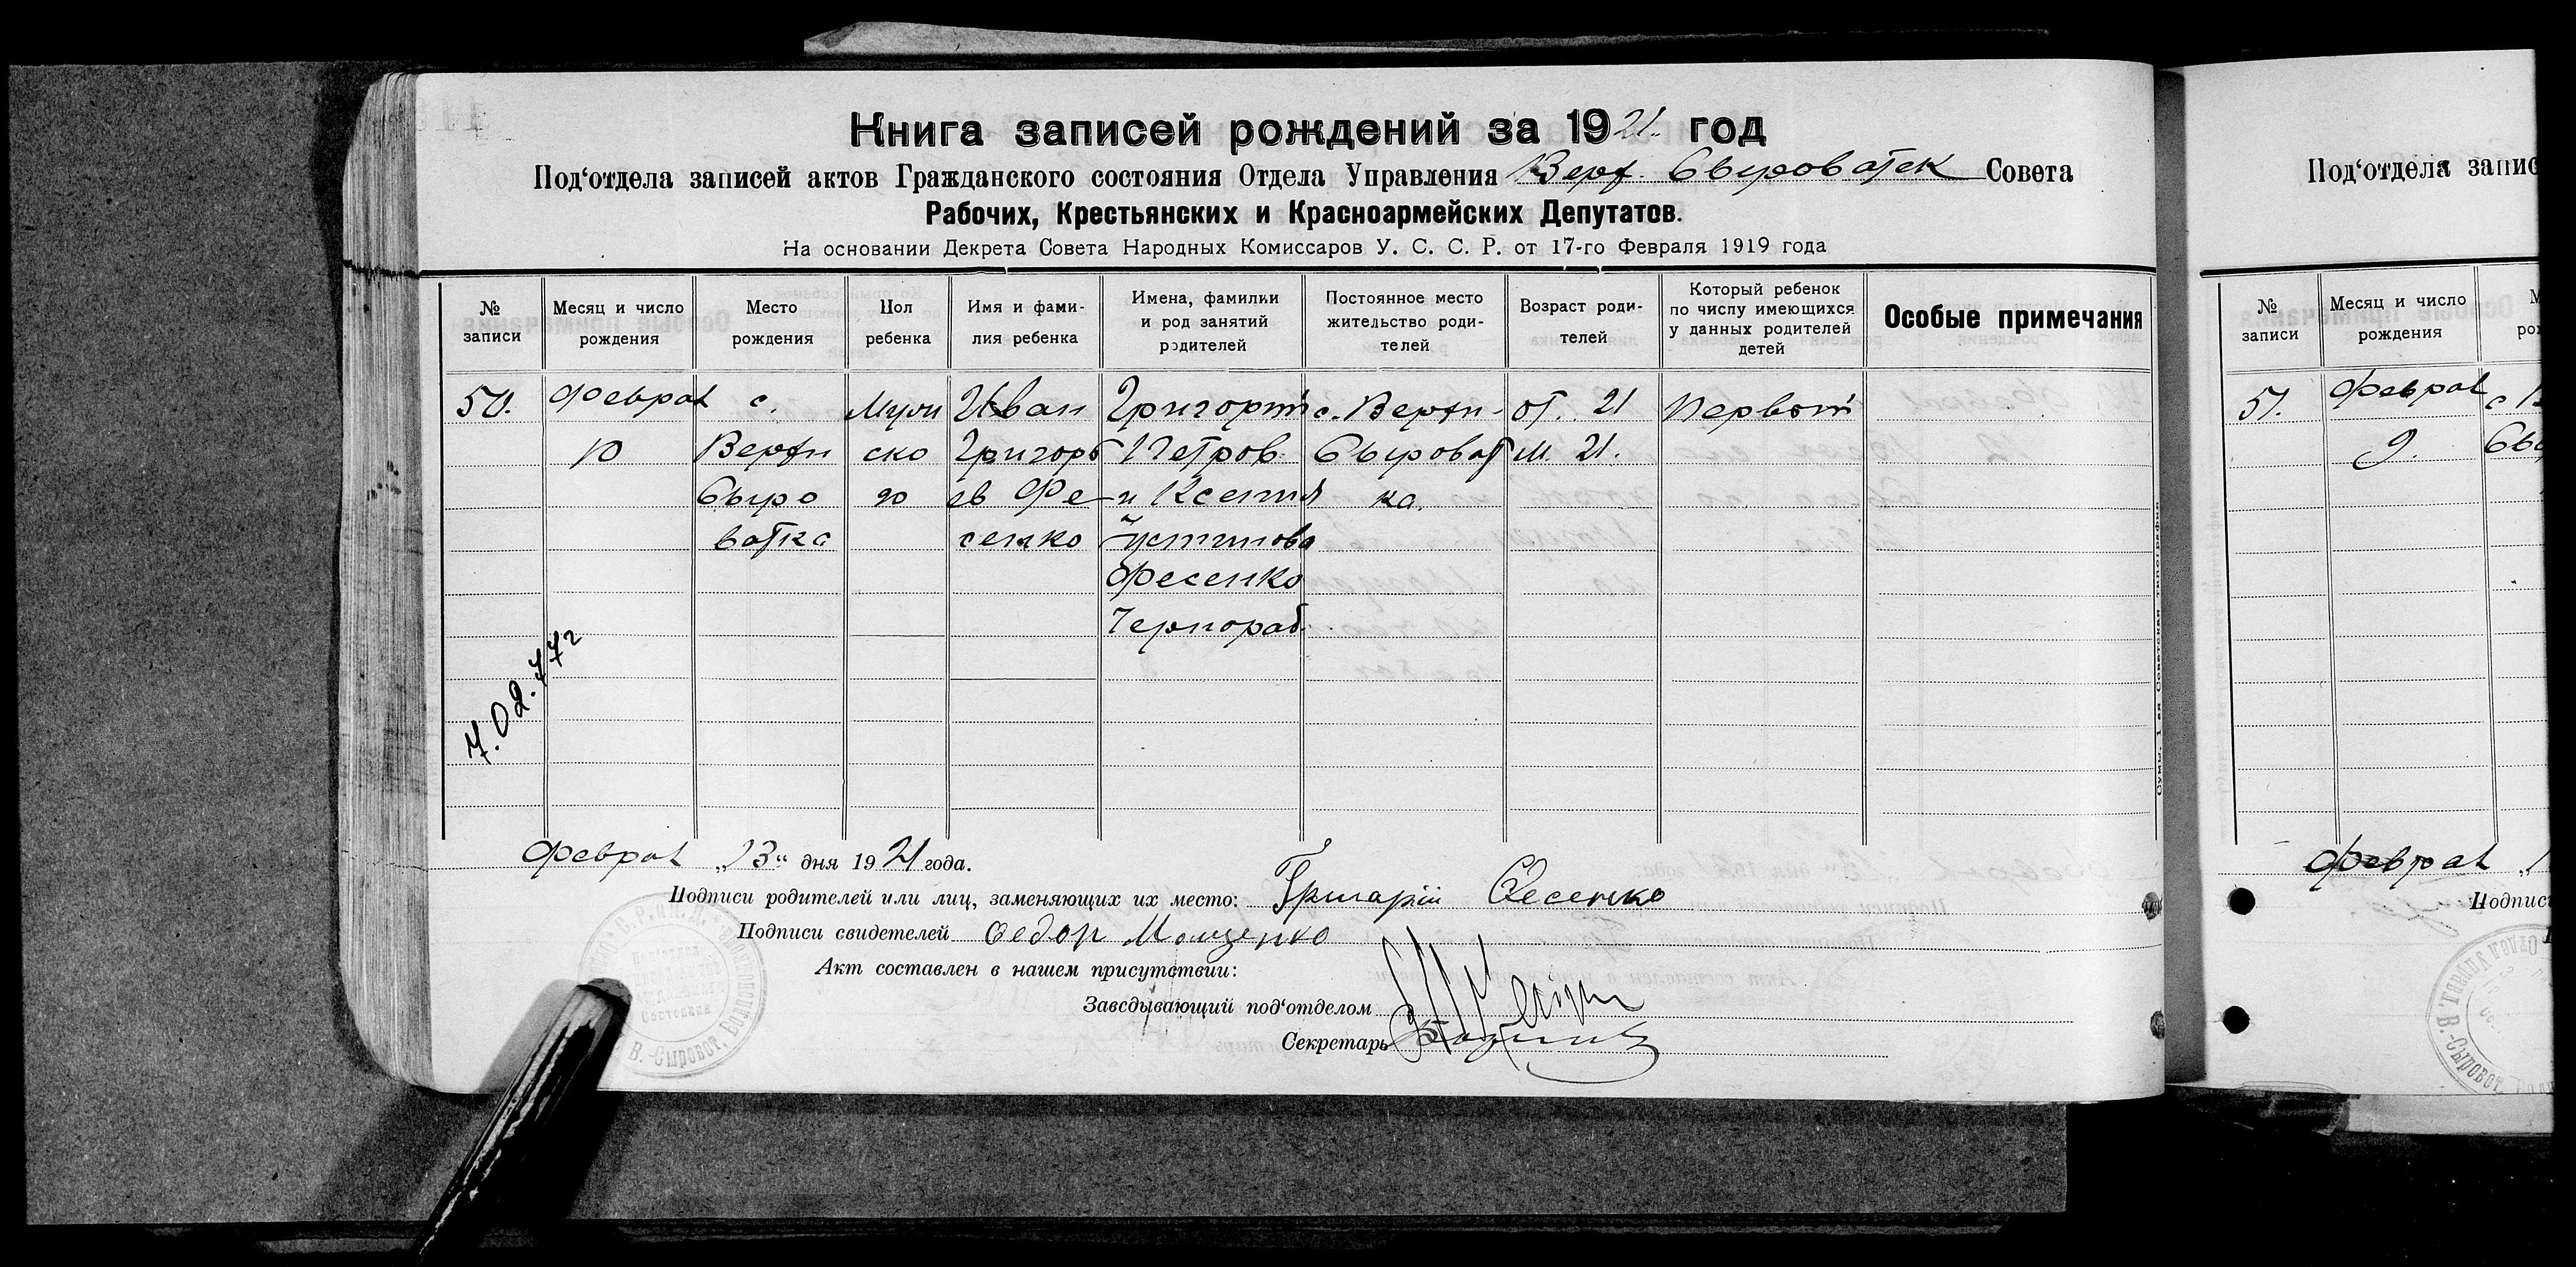 Книга записей рождений за 1921. год
Под‘отдела записей актов Гражданского состояния Отдела Управления Верх. Сыроватек Совета
Рабочих, Крестьянских и Красноармейских Депутатов.
На основании Декрета Совета Народных Комиссаров У. С. С. Р. от 17-го Февраля 1919 года
№ записи
Месяц и число рождения
Место рождения
Пол ребенка
Имя и фами-
лия ребенка
Имена, фамилии
и род занятий
родителей
Постоянное место
жительство роди-
телей
Возраст роди-
телей
Который ребенок
по числу имеющихся
у данных родителей
детей
Особые примечания
50. Феврал с. Муж Иван Григорий с. Верхн- от. 21 Первый
10 Верхн ско Григорь Петров Сыроват м. 21.
Сыро го ев Фе- и Ксения ка.
ватка сенко Устинова
Фесенко
Чернораб.
7.02.77г
Феврал „13“ дня 1921 года.
Подписи родителей или лиц, заменяющих их место: Григорий Фесенко
Подписи свидетелей Федор
Акт составлен в нашем присутствии:
Заведывающий под‘отделом
Секретарь
В.-Сыроват.
Сумы. 1-ая Советская типография
Под‘отдела запис
№ записи
Месяц и число рождения
51. Феврал с
9. Сы
Феврал
Подпис
В.-Сыроват.